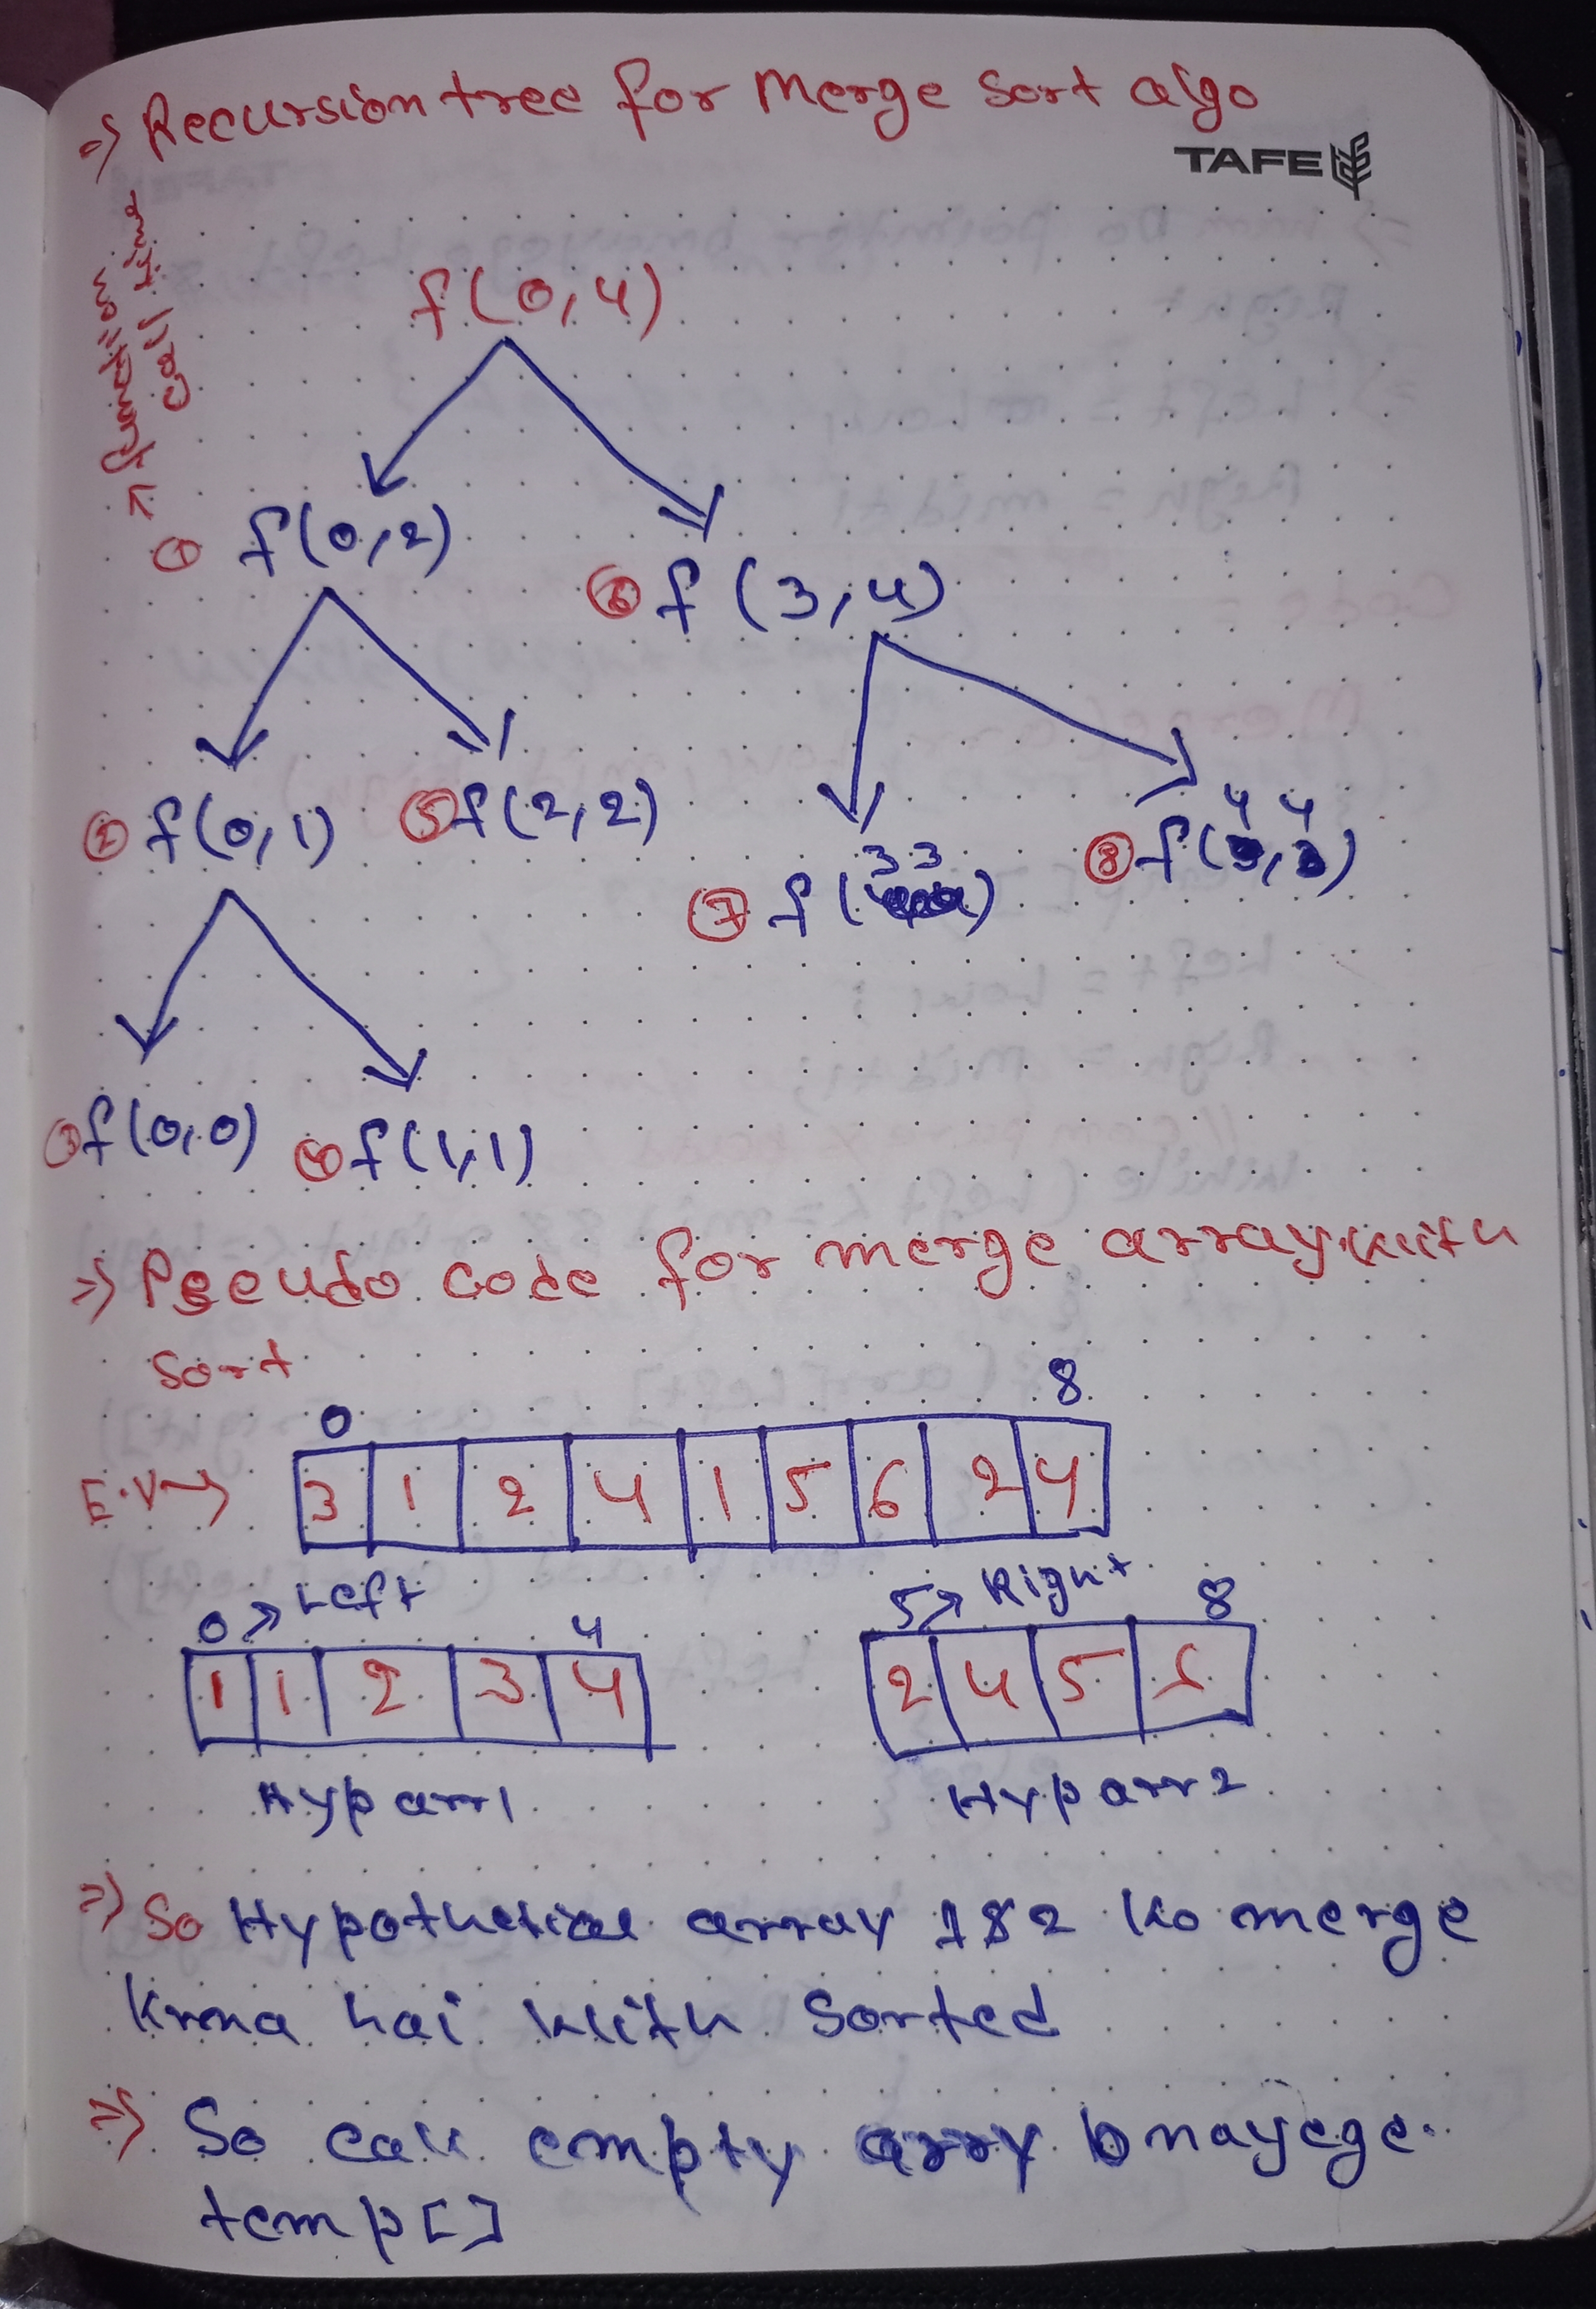 => Recursion tree for Merge Sort algo
TAFE
→ function
call time
f(0,4)
① f(0,2)
⑥ f(3,4)
② f(0,1)
⑤ f(2,2)
⑦ f(3 3)
⑧ f(4, 4)
③ f(0,0)
④ f(1,1)
=> Pseudo code for merge array with
Sort
0 8
3 1 2 4 1 5 6 2 4
0 → Left 4
5 → Right 8
1 1 2 3 4
2 4 5 6
Hyp arr1
Hyp arr2
=> So Hypothetical array 1 & 2 ko merge
krna hai with Sorted
=> So empty arry bnayege.
temp[]